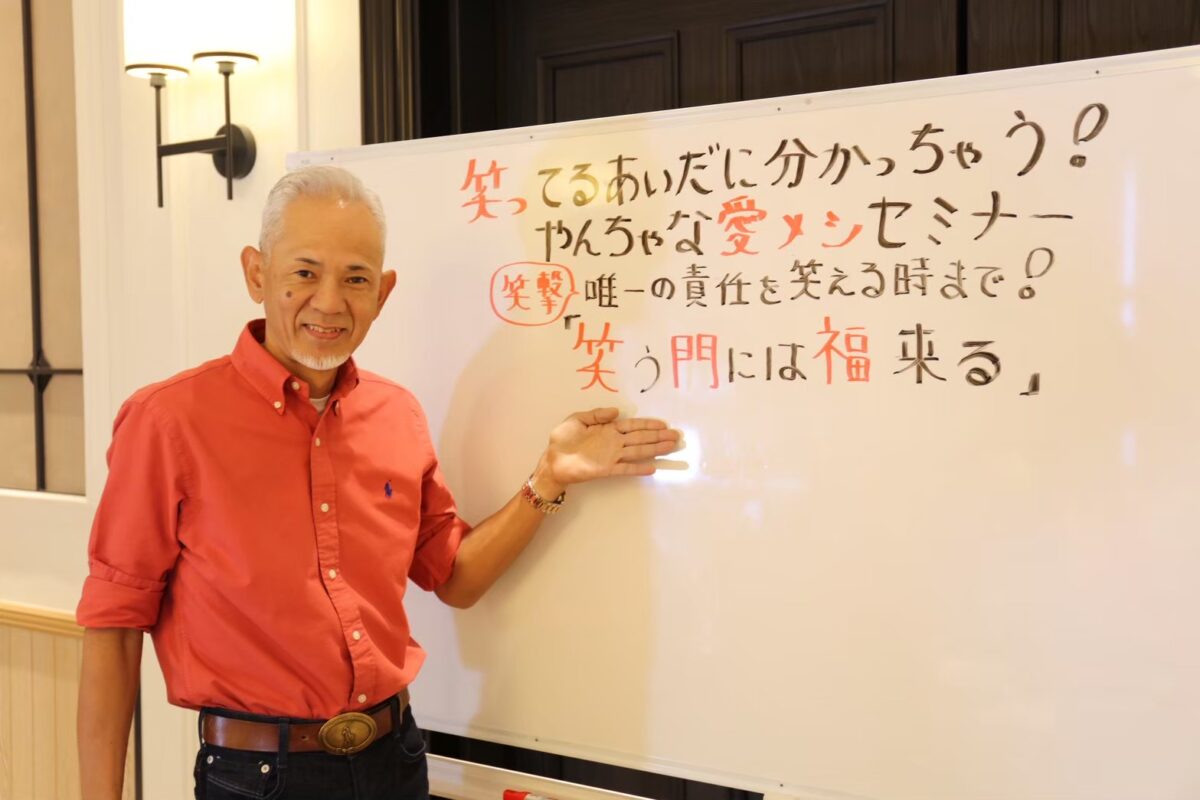 笑ってるあいだに分かっちゃう!
やんちゃな愛メシセミナー
笑撃 唯一の責任を笑える時まで!
「笑う門には福来る」